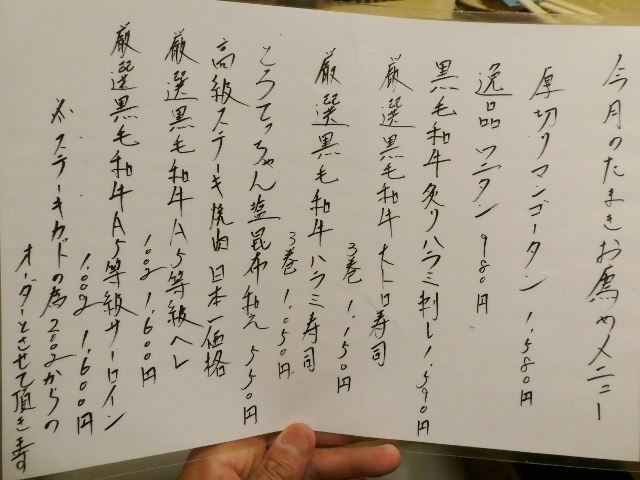 今月のたまきお薦めメニュー
厚切りマンゴータン 1,580円
逸品ツンタン 980円
黒毛和牛炙りハラミ刺し 1,590円
厳選黒毛和牛大トロ寿司
3巻 1,150円
厳選黒毛和牛ハラミ寿司
3巻 1,050円
こうてっちゃん塩昆布和え 550円
高級ステーキ焼肉日本一価格
厳選黒毛和牛A5等級ヘレ
100g 1,600円
厳選黒毛和牛A5等級サーロイン
100g 1,600円
※ステーキカットの為200gからの
オーダーとさせて頂きます